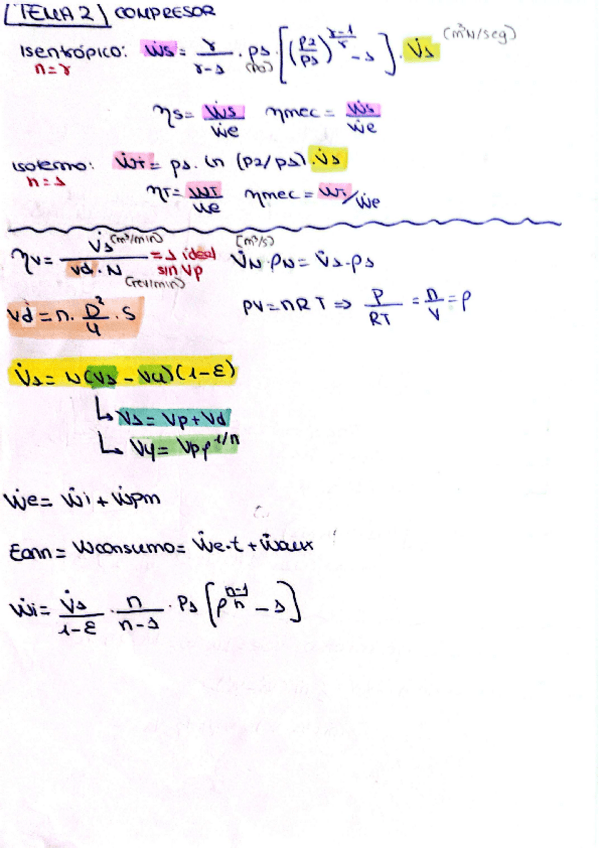 TEMA 2 COMPRESOR
Isentrópico: Ẇs = γ/(γ-1) · p1 (Pa) · [(p2/p1)^((γ-1)/γ) - 1] · V̇1 (m³N/seg)
n=γ
ηs = Ẇs/Ẇe   ηmec = Ẇs/Ẇe
Isotermo: ẆT = p1 · ln (p2/p1) · V̇1
n=1
ηT = ẆT/Ẇe   ηmec = Ẇi/Ẇe
ηv = V̇1 (m³/min) / (Vd · N (rev/min)) = 1 ideal sin Vp   (m³/s) V̇N · pN = V̇1 · p1
Vd = n · D²/4 · S   pV = nRT ⇒ P/RT = n/V = ρ
V̇1 = N (V1 - V4) (1-ε)
↳ V1 = Vp + Vd
↳ V4 = Vp ρ^(1/n)
Ẇe = Ẇi + Ẇpm
Econ = Wconsumo = Ẇe·t + Ẇaux
Ẇi = V̇1/(1-ε) · n/(n-1) · P1 [ρ^((n-1)/n) - 1]